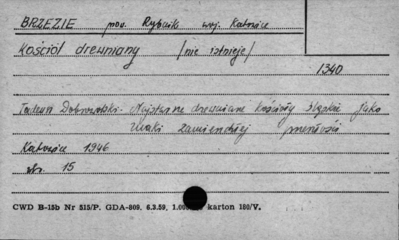 BRZEZIE pow. Rybnik woj. Katowice
Kościół drewniany /nie istnieje/
1340
Tadeusz Dobrowolski - Najstarsze drewniane kościoły śląskie jako
znaki zamierzchłej przeszłości
Katowice 1946
str. 15
CWD B-15b Nr 515/P. GDA-809. 6.3.59, 1.00 karton 180/V.